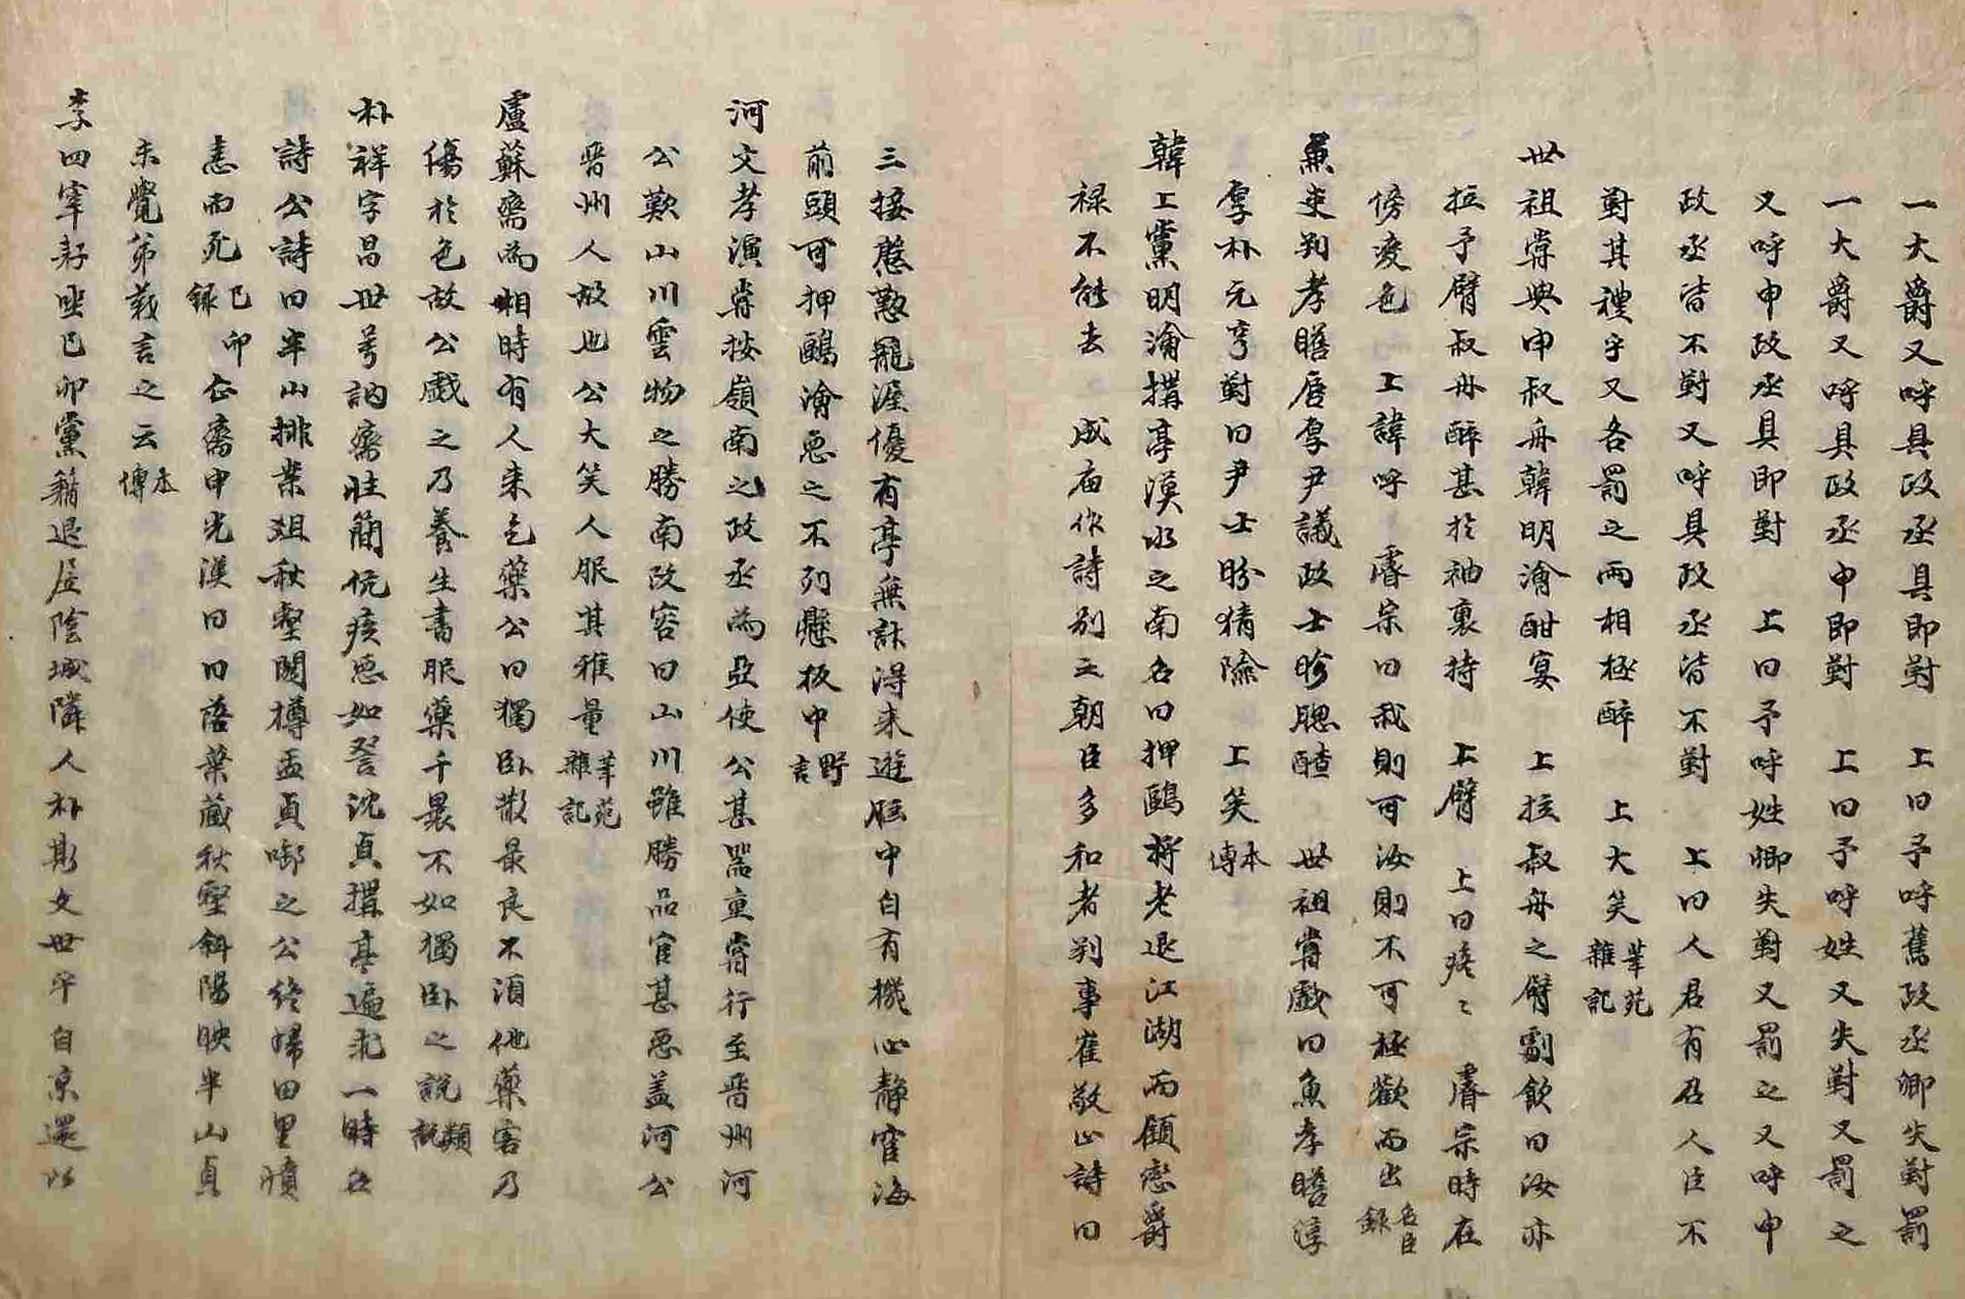 一大爵又呼具政丞具即對　上曰予呼舊政丞卿失對罰
一大爵又呼具政丞申即對　上曰予呼姓又失對又罰之
又呼申政丞具即對　上曰予呼姓卿失對又罰之又呼申
政丞皆不對又呼具政丞皆不對　上曰人君有召人臣不
對其禮乎又各罰之兩相極醉　上大笑 筆苑雜記
世祖嘗與申叔舟韓明澮酣宴　上拉叔舟之臂劇飮曰汝亦
拉予臂叔舟醉甚於袖裏持　上臂　上曰疼〻　睿宗時在
傍変色　上諱呼　睿宗曰我則可汝則不可極歡而出 名臣錄
魚吏判孝瞻唇厚尹議政士昐腮䶥　世祖嘗戲曰魚孝瞻淳
厚朴元亨對曰尹士昐猜險　上笑 本傳
韓上黨明澮搆亭漢水之南名曰押鷗将老退江湖而顧戀爵
禄不能去　成庙作詩別之朝臣多和者判事崔敬止詩曰
三接慇懃寵渥優有亭無計淂来遊胷中自有機心靜宦海
前頭可押鷗澮惡之不列懸板中 野言
河文孝演嘗按嶺南之政丞為亞使公甚器重嘗行至晋州河
公歎山川雲物之勝南改容曰山川雖勝品官甚惡盖河公
晋州人故也公大笑人服其雅量 筆苑雜記
盧蘇齋為相時有人来乞藥公曰獨卧散最良不湏他藥客乃
傷於色故公戲之乃養生書服藥千晨不如獨卧之說 類說
朴祥字昌世号訥齋性簡伉疾惡如讐沈貞搆亭遍求一時名
詩公詩曰半山排案俎秋壑鬪樽盃貞啣之公終歸田里憤
恚而死 己卯錄 企齋申光漢曰曰落葉藏秋壑斜陽映半山貞
未覺弟義言之云 本傳
李四宰耔坐己卯黨籍退居陰城隣人朴斯文世平自京還以